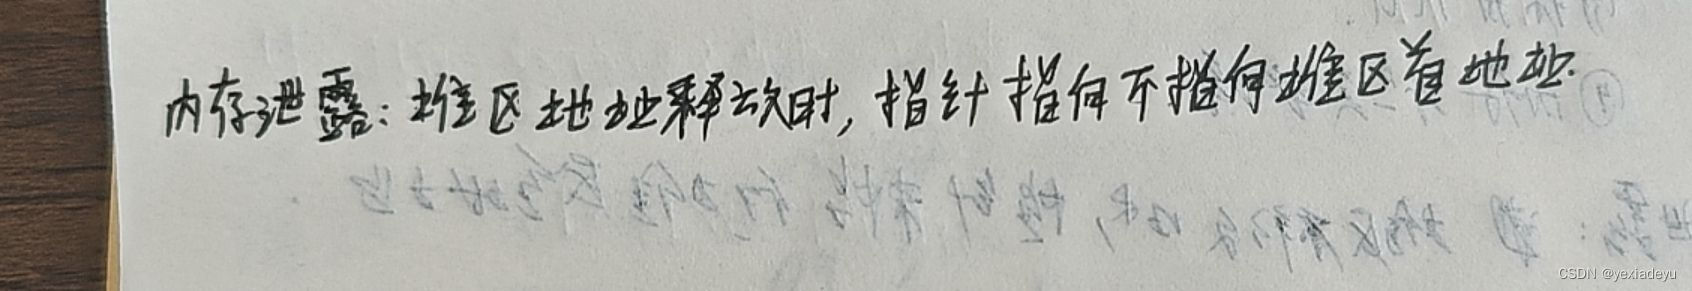 内存泄露：堆区地址释放时，指针指向不指向堆区首地址.
CSDN @yexiadeyu